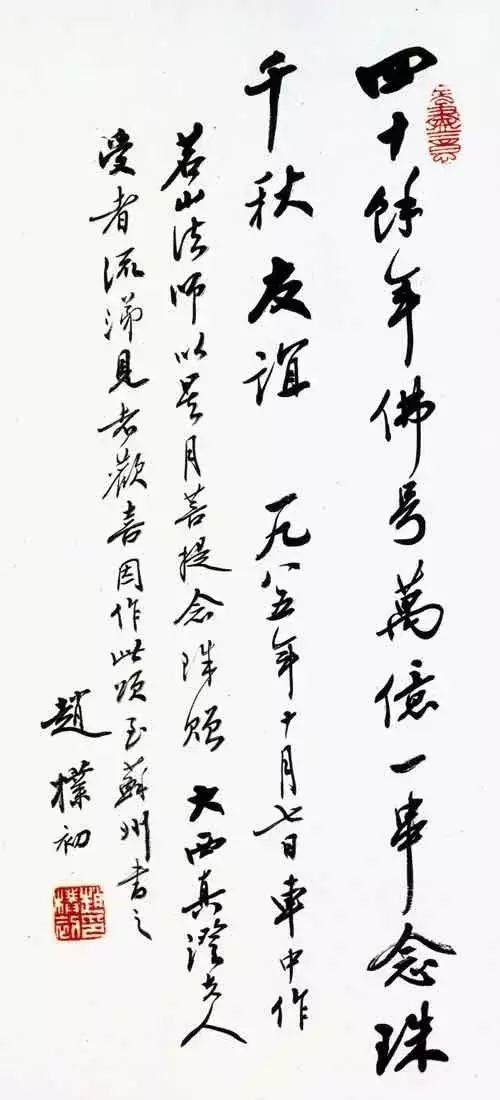 无盡意
四十餘年佛号萬億一串念珠
千秋友誼 一九八五年十月七日車中作
茗山法师以星月菩提念珠赠 大西真澄夫人
受者流涕見者歡喜因作此頌至蘇州書之
趙樸初